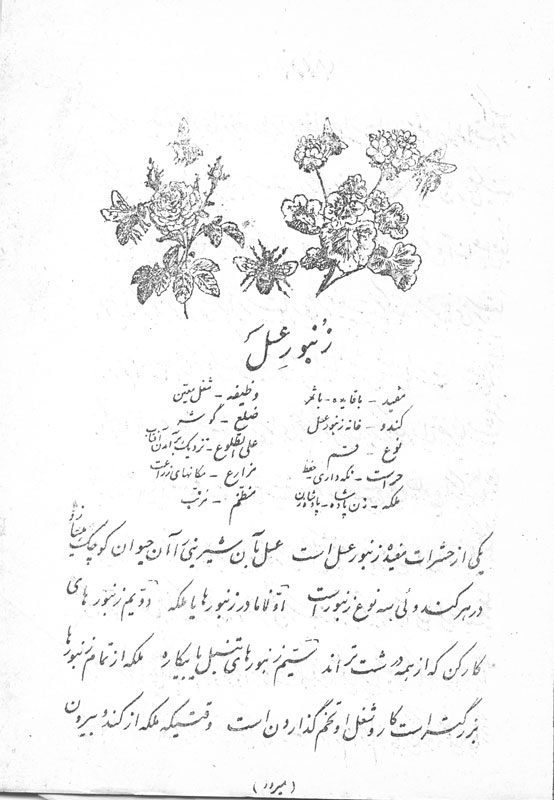 زنبورِ عسل
مفید - بافایده - باثمر
وظیفه - شغل معین
کندو - خانه زنبور عسل
ضلع - گوشه
نوع - قسم
علی الطلوع - نزدیک برآمدن آفتاب
حراست - نگه‌داری حفظ
مزارع - مکانهای زراعت
ملکه - زن پادشاه -
منظم - مرتب
یکی از حشرات مفیده زنبور عسل است عسل بآن شیرینی را آن حیوان کوچک میسازد
در هر کندوئی سه نوع زنبور است اوّلاً مادر زنبورها یا ملکه دویم زنبورهای
کارکن که از همه درشت‌تر اند سیّم زنبورهای تنبل یا بیکاره ملکه از تمام زنبورها
بزرگتر است کار و شغل او تخم گذاردن است وقتیکه ملکه از کندو بیرون
(میرود)